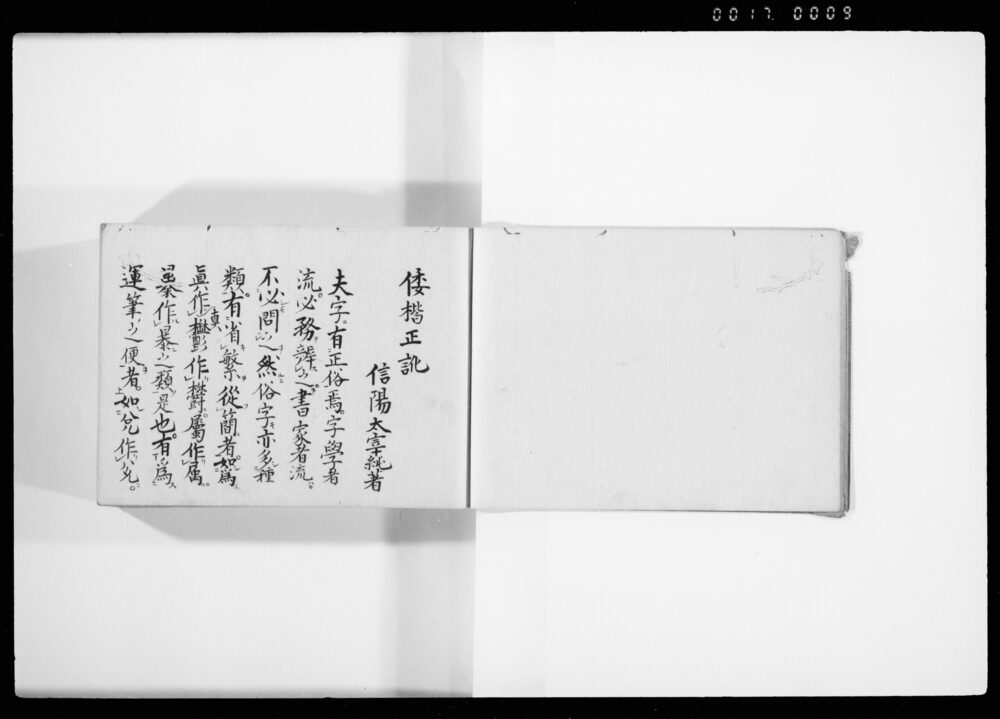 0017 0009
倭楷正訛
信陽太宰純著
夫字有正俗焉。字學者
流。必務辨之。書家者流。
不必問之。然俗字亦多種
類。有省繁從簡者。如爲
眞作真 作欝屬作属。
作暴之類是也。有爲
運筆之便者。如兌作兊。